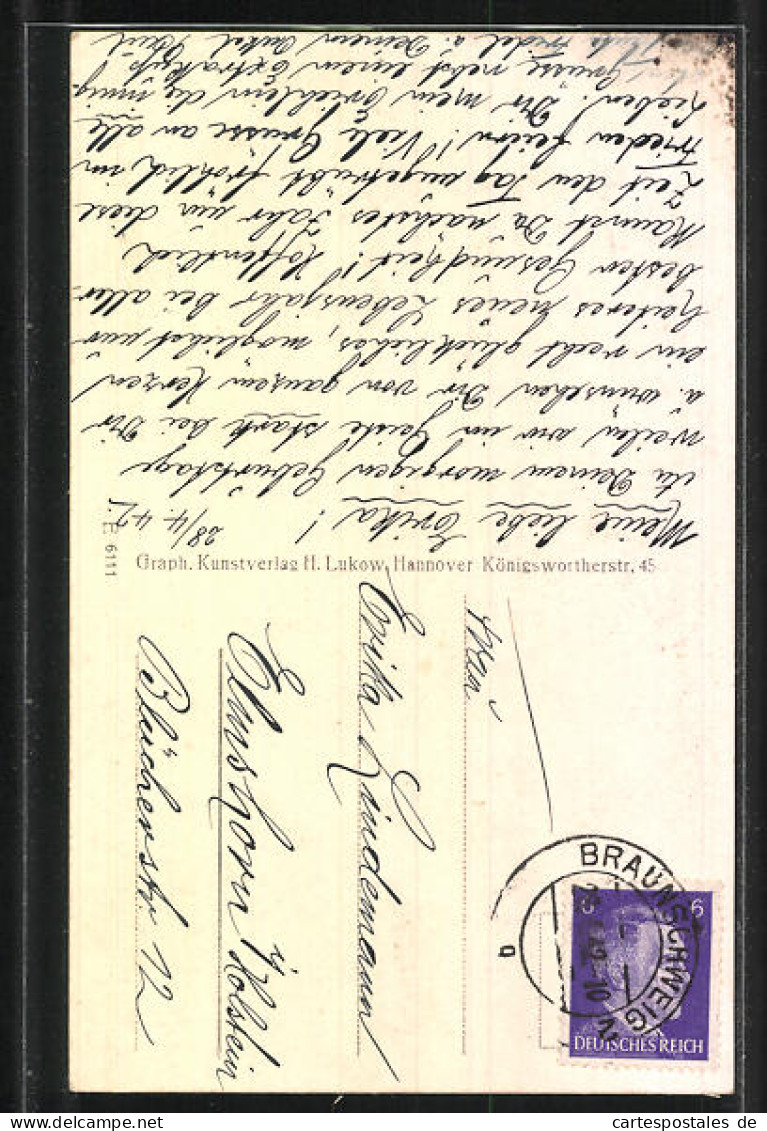 28/4.42
Meine liebe Erika!
zu Deinem morgigen Geburtstage
weilen wir im Geiste stark bei Dir
u. wünschen Dir von ganzem Herzen
ein recht glückliches, möglichst nur
heiteres neues Lebensjahr bei aller-
besten Gesundheit! Hoffentlich
kannst Du nächstes Jahr um diese
Zeit den Tag ungetrübt fröhlich im
Frieden feiern! Viele Grüsse an alle
Lieben. Dir mein Evchlein die innig
Grüsse nebst einem Extrakuß!
Deinem Onkel
Graph. Kunstverlag H. Lukow, Hannover Königswortherstr. 45
6111
Erika Lindemann
Elmshorn i/Holstein
Blücherstr. 12
BRAUNSCHWEIG
6
DEUTSCHES REICH
cartespostales de
www.cartespostales.de